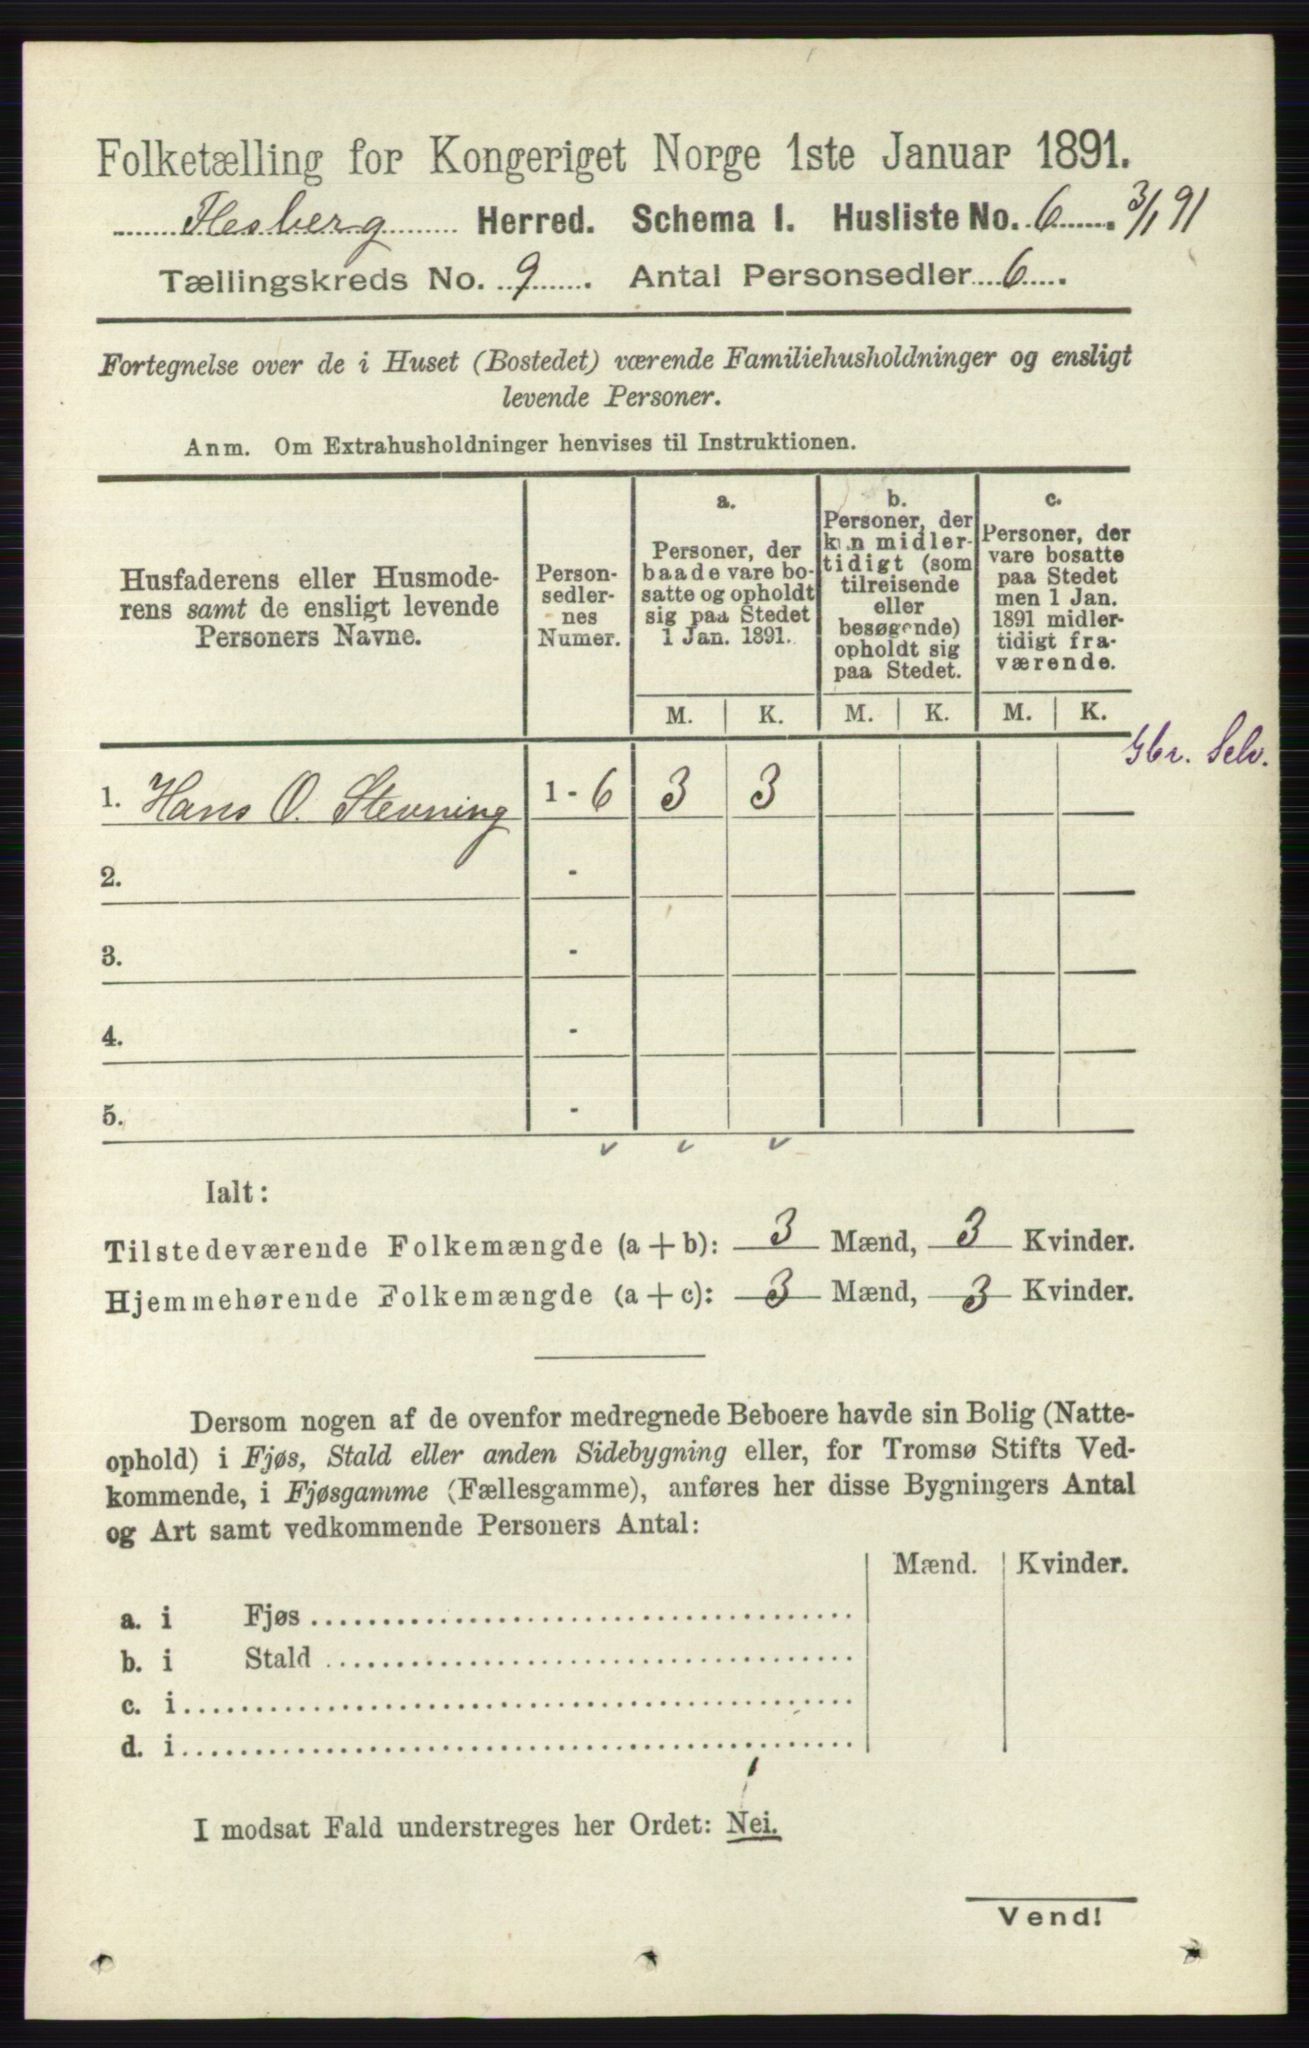 Folketælling for Kongeriget Norge 1ste Januar 1891.
Flesberg Herred. Schema I. Husliste No. 6. 3/1 91
Tællingskreds No. 9. Antal Personsedler 6.
Fortegnelse over de i Huset (Bostedet) værende Familiehusholdninger og ensligt
levende Personer.
Anm. Om Extrahusholdninger henvises til Instruktionen.
Husfaderens eller Husmode-
rens samt de ensligt levende
Personers Navne.
Person-
sedler-
nes
Numer.
a.
Personer, der
baade vare bo-
satte og opholdt
sig paa Stedet
1 Jan. 1891.
b.
Personer, der
kun midler-
tidigt (som
tilreisende
eller
besøgende)
opholdt sig
paa Stedet.
c.
Personer, der
vare bosatte
paa Stedet
men 1 Jan.
1891 midler-
tidigt fra-
værende.
M. K. M. K. M. K.
Gbr. Selv.
1. Hans O. Stevning 1 - 6 3 3
2. -
3. -
4. -
5. -
Ialt:
Tilstedeværende Folkemængde (a + b): 3 Mænd, 3 Kvinder.
Hjemmehørende Folkemængde (a + c): 3 Mænd, 3 Kvinder.
Dersom nogen af de ovenfor medregnede Beboere havde sin Bolig (Natte-
ophold) i Fjøs, Stald eller anden Sidebygning eller, for Tromsø Stifts Ved-
kommende, i Fjøsgamme (Fællesgamme), anføres her disse Bygningers Antal
og Art samt vedkommende Personers Antal:
Mænd. Kvinder.
a. i Fjøs
b. i Stald
c. i
d. i
I modsat Fald understreges her Ordet: Nei.
Vend!